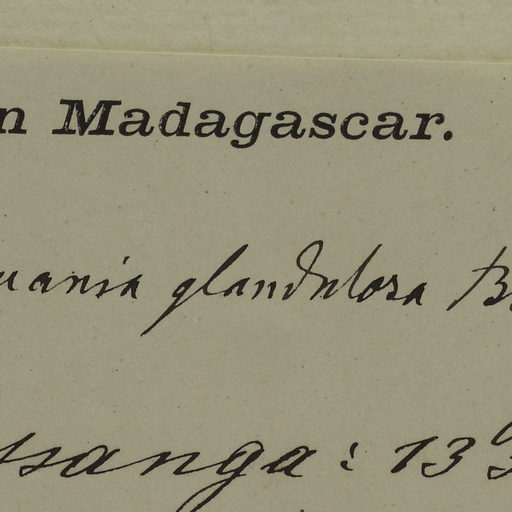 n Madagascar.
uania glandulosa B
ssanga: 13